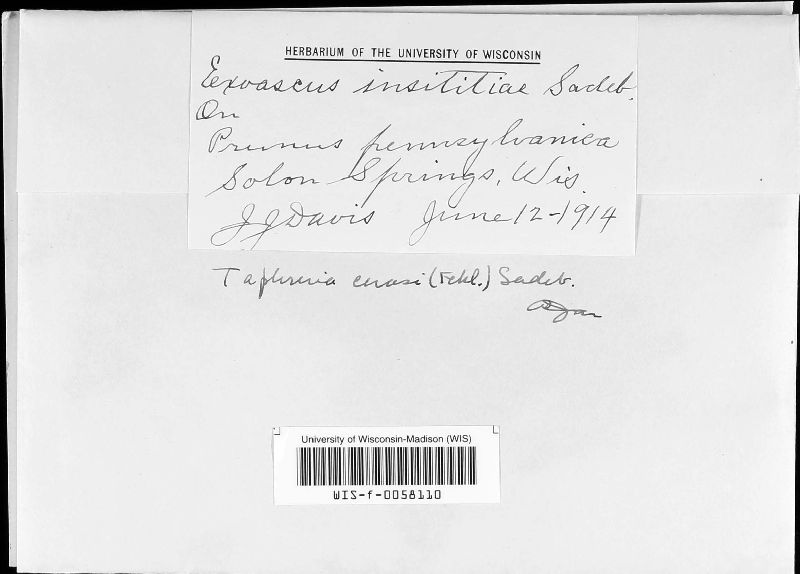 HERBARIUM OF THE UNIVERSITY OF WISCONSIN
Exoascus insititiae Sadeb.
On
Prunus pennsylvanica
Solon Springs, Wis.
JJDavis June 12-1914
Taphrina cerasi (Fckl.) Sadeb.
University of Wisconsin-Madison (WIS)
WIS-f-0058110